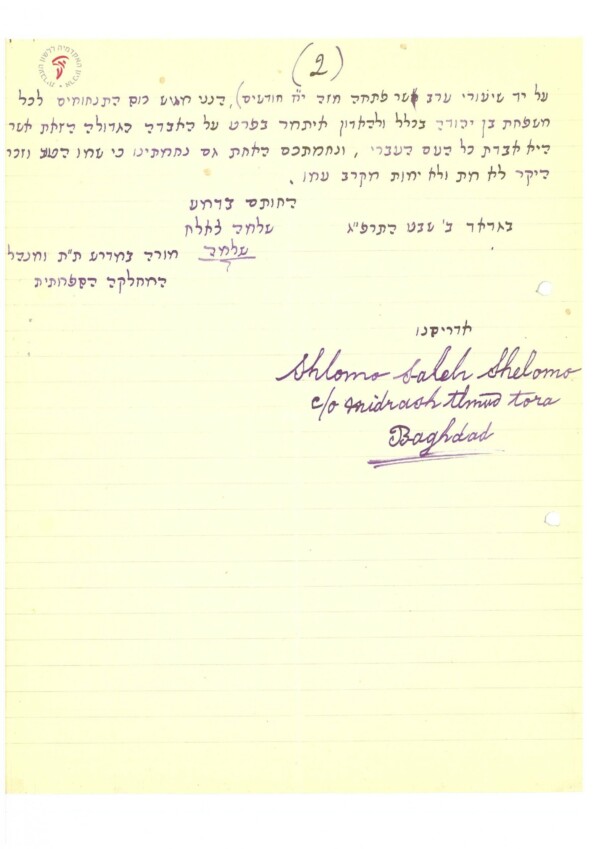 (2)
על יד שיעורי ערב אשר פתחה מזה י"ח חודשים), הנני מגיש כוס התנחומים לכל
משפחת בן יהודה בכלל ולהאדון איתמר בפרט על האבדה הגדולה הזאת אשר
היא אבדת כל העם העברי, ונחמתכם האחת גם נחמתינו כי שמו הטוב וזכרו
היקר לא מת ולא ימות מקרב עמו.
החותם בדמע
בגדאד ב' שבט התרפ"ג שלמה צאלח
שלמה מורה במדרש ת"ת ומנהל
המחלקה הספרותית
אדריסנו
Shlomo Saleh Shelomo
c/o Midrash Tlmud tora
Baghdad